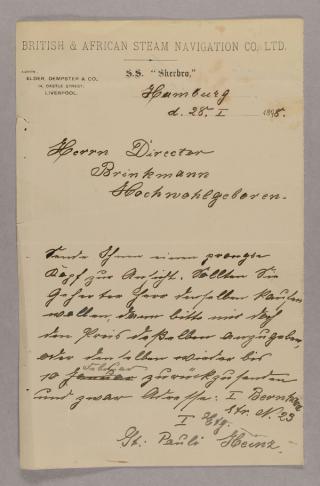 BRITISH & AFRICAN STEAM NAVIGATION CO. LTD.
ELDER, DEMPSTER & CO.,
14, CASTLE STREET,
LIVERPOOL.
S.S. "Sherbro,"
Hamburg
d. 28. I 1898.
Herrn Director
Brinkmann
Hochwohlgeboren.
Sende Ihnen einen
Kopf zur Ansicht. Sollten Sie
Geehrter Herr denselben kaufen
wollen, dann bitte mir doch
den Preis deßelben anzugeben,
oder denselben wieder bis
Februar
10 Januar zurückzusenden
und zwar Adresse: I Bernhard
Str. N. 23
I Etg.
St: Pauli Heinz.